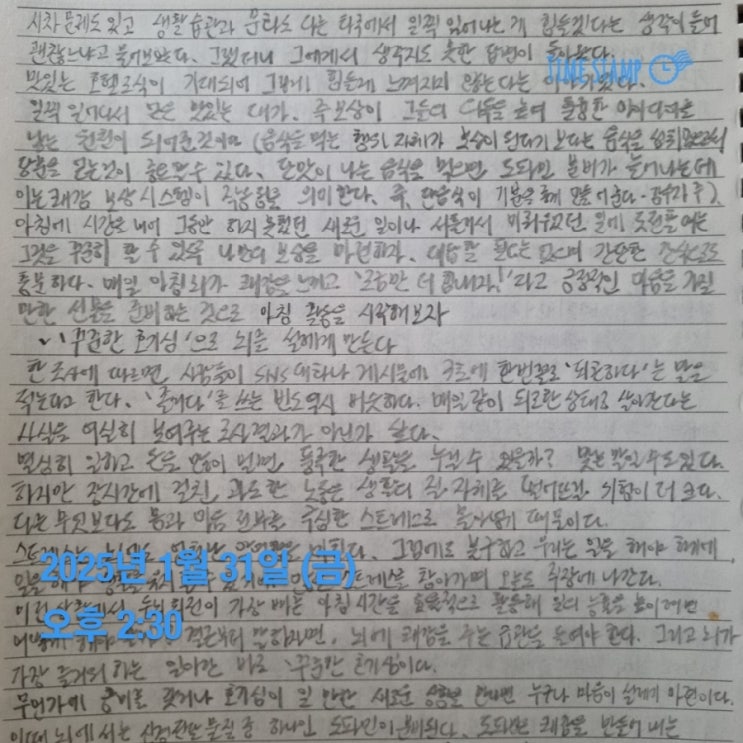 시차 문제도 있고 생활 습관과 문화도 다른 타국에서 일찍 일어나는 게 힘들겠다는 생각이 들어
괜찮느냐고 물어보았다. 그랬더니 그에게서 생각지도 못한 답변이 돌아왔다.
맛있는 호텔조식이 기대되어 그렇게 힘들게 느껴지지 않는다는
TIMESTAMP
일찍 일어나서 얻은 맛있는 대가. 즉 보상이 그들의 의욕을 높여 훌륭한 아이디어를
낳는 원천이 되어준것이다 (음식을 먹는 행위 자체가 보수이 된다기 보다는 음식을
당분을 얻는것이 중요할수 있다. 단맛이 나는 음식을 먹으면 도파민 분비가 늘어나는데
이는 쾌감 보상시스템이 작동함을 의미한다. 즉, 단음식이 기분을 좋게 만들어준다 - 감수자 주).
아침에 시간을 내어 그동안 하지 못했던 새로운 일이나 서툴러서 미뤄두었던 일에 도전할 때는
그것을 꾸준히 할 수 있도록 나만의 보상을 마련하자. 대단할 필요는 없으며 간단한 간식으로도
충분하다. 매일 아침 뇌가 쾌감을 느끼고 '조금만 더 힘내자!'라고 긍정적인 마음을 가질
만한 선물을 준비하는 것으로 아침 활동을 시작해보자
'꾸준한 호기심'으로 뇌를 설레게 만든다
한 조사에 따르면, 사람들이 SNS에 나타나 게시물에 3초에 한번꼴로 '피곤하다'는 말을
적는다고 한다. '졸리다'를 쓰는 빈도 역시 비슷하다. 매일같이 피로한 상태로 살아간다는
사실을 여실히 보여주는 조사결과가 아닌가 싶다.
열심히 일하고 돈을 많이 벌면, 풍족한 생활을 누릴 수 있을까? 맞는 말일 수도 있다.
하지만 장시간에 걸친 과도한 노동은 생활의 질 자체를 떨어뜨릴 위험이 더 크다.
다른 무엇보다도 몸과 마음 전부를 극심한 스트레스로 몰아넣기 때문이다.
그럼에도 불구하고 우리는 일을 해야 하기에
2025년 1월 31일 (금)
참아가며 오늘도 직장에 나간다.
이런 상황에서 두뇌 회전이 가장 빠른 아침 시간을 효율적으로 활용해 일의 능률을 높이려면
오후 2:30
결론부터 말하자면, 뇌에 쾌감을 주는 습관을 들여야 한다. 그리고 뇌가
가장 즐거워 하는 일이란 바로 '꾸준한 호기심'이다.
무언가에 흥미를 갖거나 호기심이 일 만한 새로운 상황을 만나면 누구나 마음이 설레기 마련이다.
이때 뇌에서는 신경전달 물질 중 하나인 도파민이 분비된다. 도파민은 쾌감을 만들어 내는